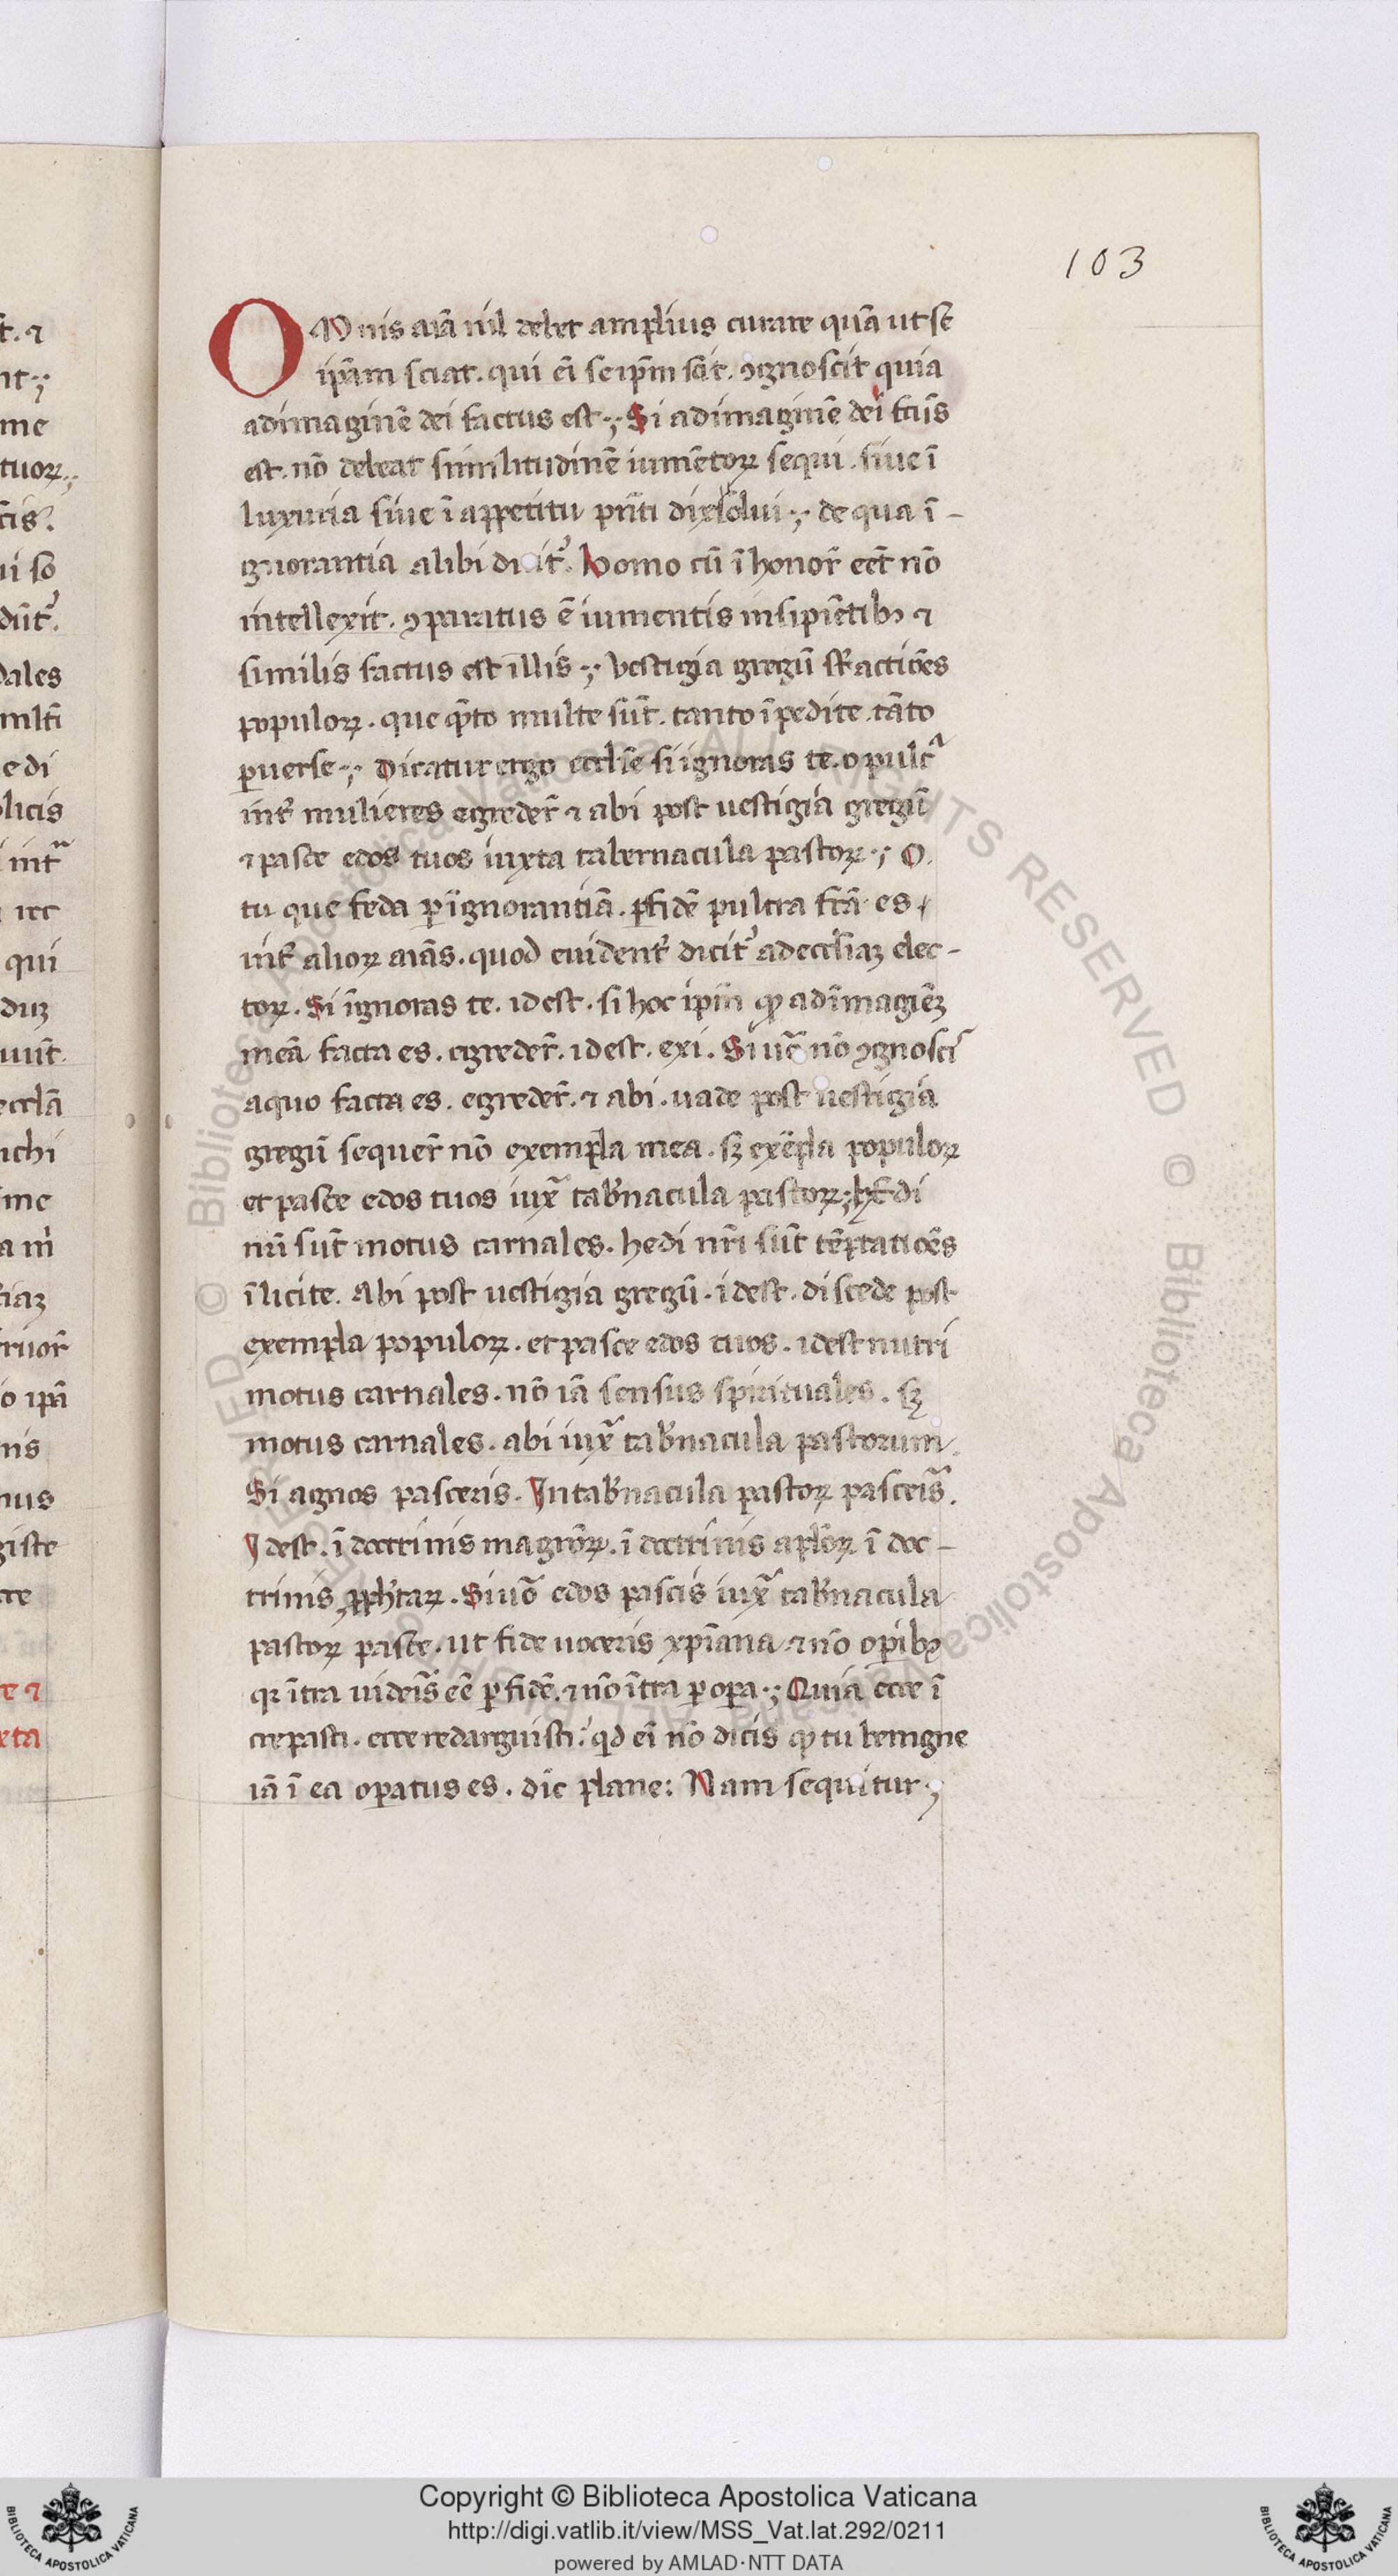 103
OMnis aīā nil debet amplius curare quā ut se
ip̄am sciat. qui ei seip̄m scit. ꝯgnoscit quia
ad imaginē dei factus est; Si ad imaginē dei fcūs
est. nō debeat similitudinē iumētoꝝ sequi. siue ī
luxuria siue ī appetitu p̄nti dissolui; de qua ī-
gnorantia alibi dicit̉. homo cū ī honor̄ eēt nō
intellexit. ꝯparatus ē iumentis insipiētibꝫ ⁊
similis factus est illis; Vestigia gregū st actiōes
populoꝝ. que q̄to multe sūt. tanto īpedite. tāto
ꝑuerse; Dicatur ergo eccl̄ie si ignoras te. o pulcᵃ
int̄ mulieres egreder̄ ⁊ abi post uestigia gregū
⁊ pasce edos tuos iuxta tabernacula pastoꝝ; O.
tu que feda ꝑ ignorantiā. ꝑ fidē pulcra fcā es
int̄ alioꝝ aīas. quod euident̄ dicit̉ ad eccl̄iaꝫ elec-
toꝝ. Si ignoras te. idest. si hoc ip̄m ꝙ ad īmagiēꝫ
meā facta es. egreder̄. idest. exi. Si uō nō ꝯgnosci
a quo facta es. egreder̄. ⁊ abi. uade post uestigia
gregū sequer̄ nō exempla mea. sꝫ exēpla populoꝝ
et pasce edos tuos iuxᵃ tab̄nacula pastoꝝ; hedi
nr̄i sūt motus carnales. hedi nr̄i sūt tēptatiōes
īlicite. Abi post uestigia gregū. idest. discede post
exempla populoꝝ. et pasce edos tuos. idest nutri
motus carnales. nō iā sensus spirituales. sꝫ
motus carnales. abi iuxᵃ tab̄nacula pastorum.
Si agnos pasceris. In tab̄nacula pastoꝝ pasceis̄.
Idest. ī doctrinis magr̄oꝝ. ī doctrinis apl̄oꝝ ī doc-
trinis ꝓph̄taꝝ. Si uō edos pascis iuxᵃ tab̄nacula
pastoꝝ pasce. ut fide uoceris xp̄iana ⁊ nō oꝑibꝫ
qꝛ ītra uideis̄ eē ꝑ fidē. ⁊ nō ītra ꝑ oꝑa; Quia ecce ī
crepasti. ecce redarguisti. qd̄ ei nō dicis ꝙ tu benigne
iā ī ea oꝑatus es. dic plane: Nam sequitur;
t. ⁊
nt;
me
tuoꝝ;
cis.
ui so
dūt̉.
dales
mlti
e di
licis
intᵃ
rec
qui
duꝫ
uūt.
eccl̄a
ichi
me
a m
iaꝫ
ruor̄
o ip̄a
nis
nus
giste
re
re ⁊
xta
© Biblioteca Apostolica Vaticana ALL RIGHTS RESERVED © Biblioteca Apostolica Vaticana ALL RIGHTS RESERVED
BIBLIOTECA APOSTOLICA VATICANA
Copyright © Biblioteca Apostolica Vaticana
http://digi.vatlib.it/view/MSS_Vat.lat.292/0211
powered by AMLAD·NTT DATA
BIBLIOTECA APOSTOLICA VATICANA